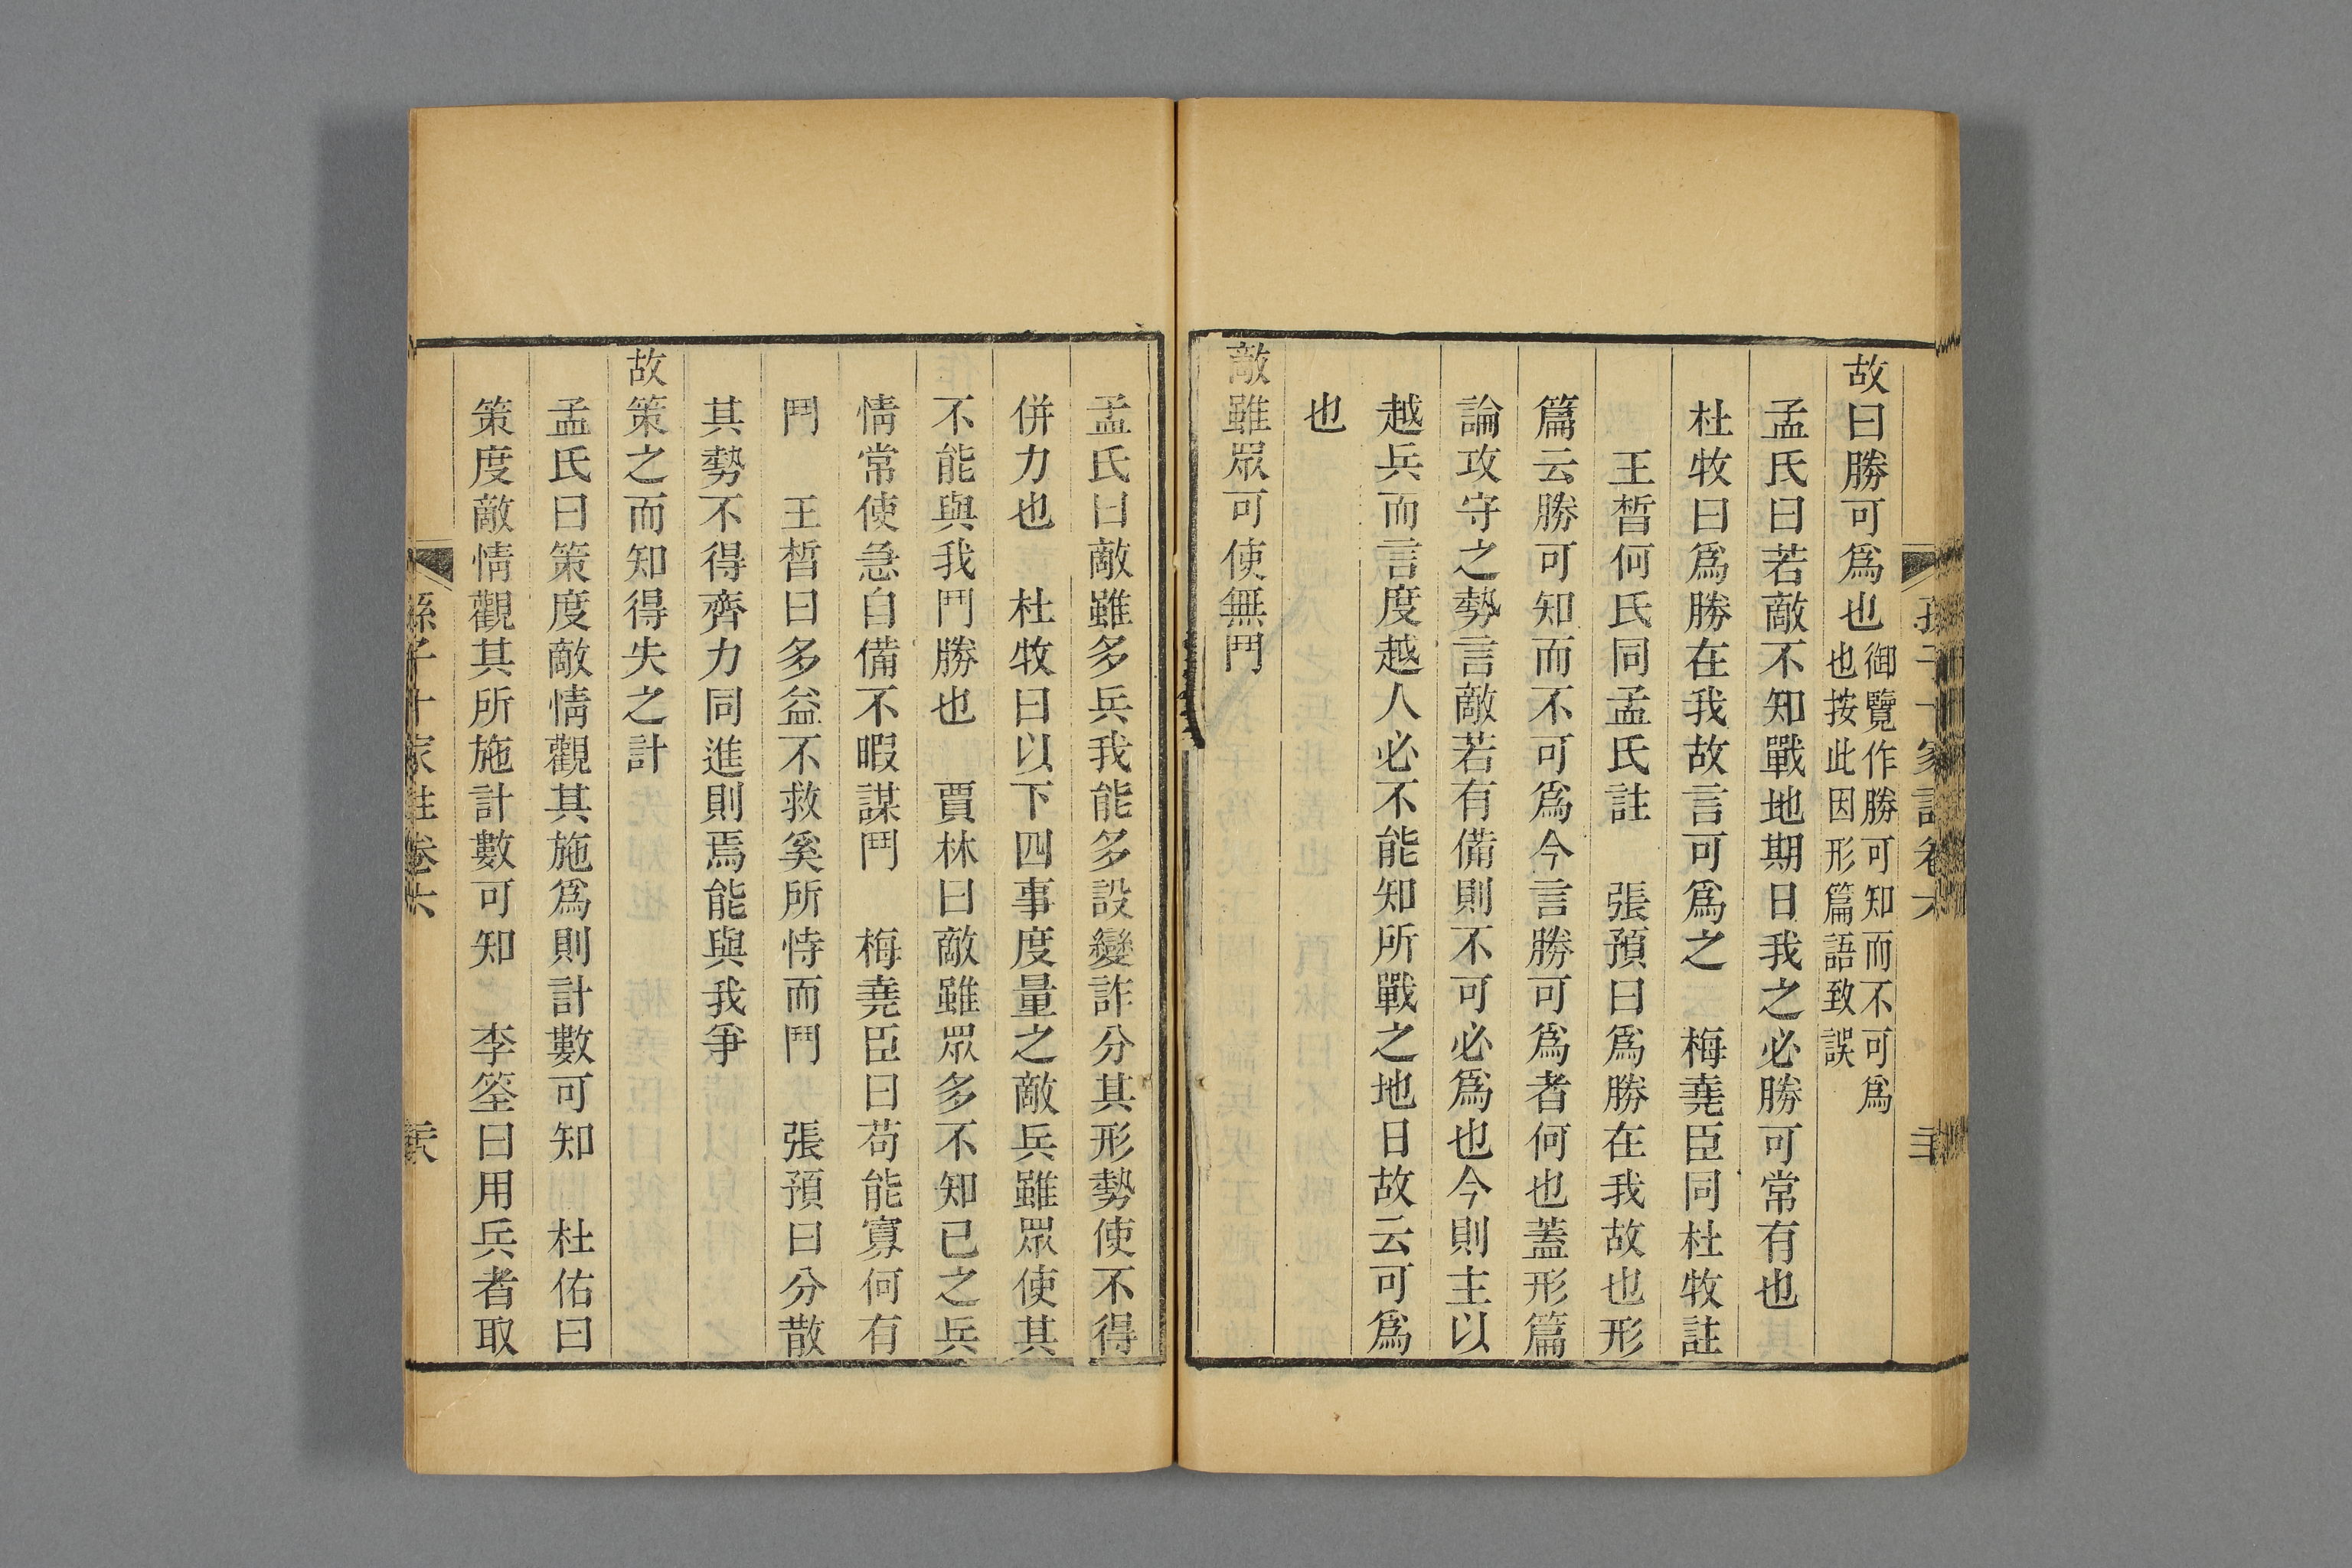 故曰勝可爲也御覽作勝可知而不可爲
也按此因形篇語致誤
孟氏曰若敵不知戰地期日我之必勝可常有也
杜牧曰爲勝在我故言可爲之　梅堯臣同杜牧註
王晳何氏同孟氏註　張預曰爲勝在我故也形
篇云勝可知而不可爲今言勝可爲者何也蓋形篇
論攻守之勢言敵若有備則不可必爲也今則主以
越兵而言度越人必不能知所戰之地日故云可爲
也
敵雖眾可使無鬥
孟氏曰敵雖多兵我能多設變詐分其形勢使不得
併力也　杜牧曰以下四事度量之敵兵雖眾使其
不能與我鬥勝也　賈林曰敵雖眾多不知已之兵
情常使急自備不暇謀鬥　梅堯臣曰苟能寡何有
鬥　王晳曰多益不救奚所恃而鬥　張預曰分散
其勢不得齊力同進則焉能與我爭
故策之而知得失之計
孟氏曰策度敵情觀其施爲則計數可知　杜佑曰
策度敵情觀其所施計數可知　李筌曰用兵者取
孫子十家註卷六